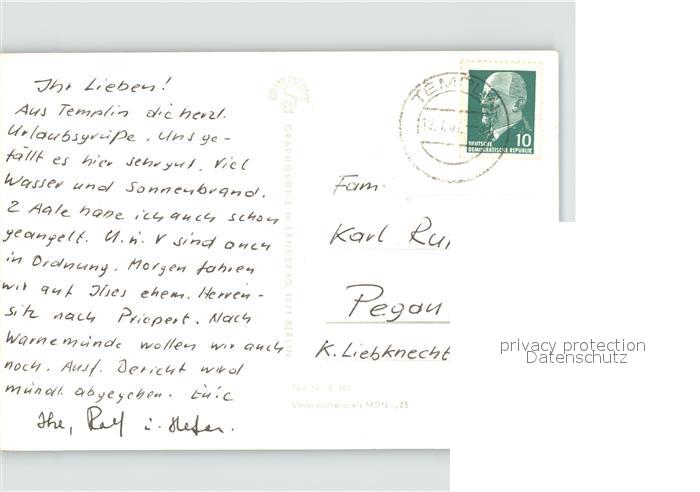 Ihr Lieben!
Aus Templin die herzl.
Urlaubsgrüße. Uns ge-
fällt es hier sehr gut. Viel
Wasser und Sonnenbrand.
2 Aale habe ich auch schon
geangelt. U. u. V sind auch
in Ordnung. Morgen fahren
wir auf Ilses ehem. Herren-
sitz nach Priepert. Nach
Warnemünde wollen wir auch
noch. Ausf. Bericht wird
mündl. abgegeben.
Rolf
GRAPHOKOPIE H. SANDER KG, 1071 BERLIN
Verbraucherpreis MDN -,25
TEMPLIN
10
DEUTSCHE
DEMOKRATISCHE REPUBLIK
Fam.
Karl
Pegau
K. Liebknecht
privacy protection
Datenschutz